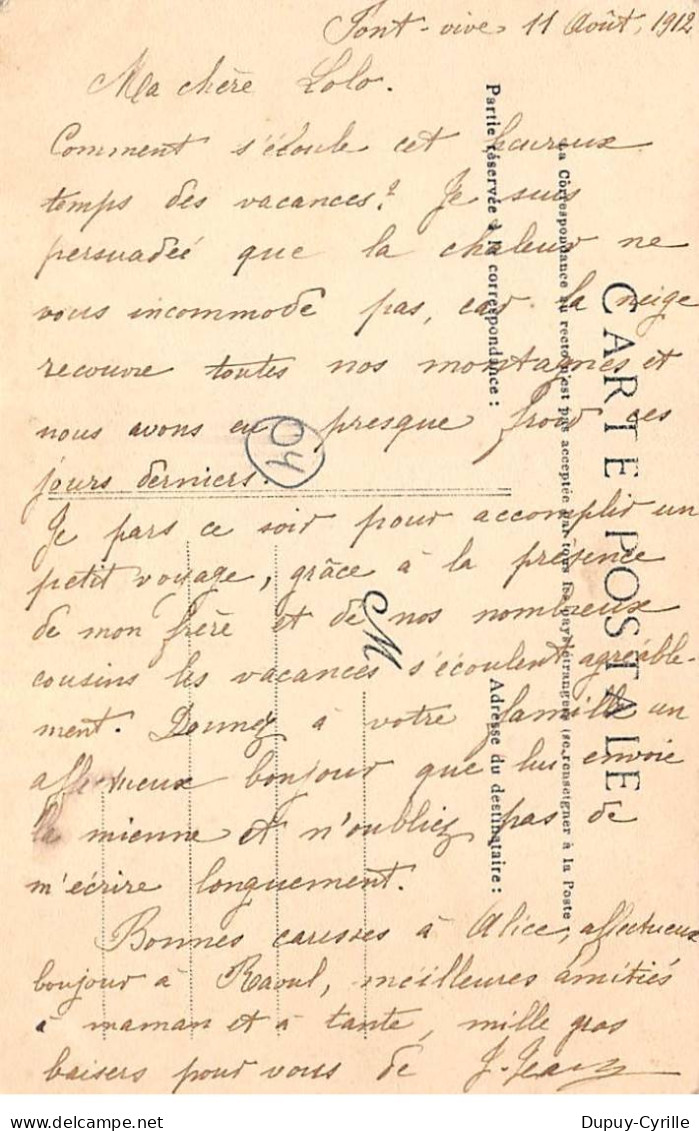 Font-vive 11 Août, 1912
Ma chère Lolo.
Comment s'écoule cet heureux
temps des vacances? Je suis
persuadée que la chaleur ne
vous incommode pas, car la neige
recouvre toutes nos montagnes et
nous avons eu presque froid ces
jours derniers.
Je pars ce soir pour accomplir un
petit voyage, grâce à la présence
de mon frère et de nos nombreux
cousins les vacances s'écoulent agréable-
ment. Donnez à votre famille un
affectueux bonjour que lui envoie
la mienne et n'oubliez pas de
m'écrire longuement.
Bonnes caresses à Alice, affectueux
bonjour à Raoul, meilleures amitiés
à maman et à tante, mille gros
baisers pour vous de J. Jean
04
CARTE POSTALE
La Correspondance au recto n'est pas acceptée par tous les pays étrangers (se renseigner à la Poste
Partie réservée à la correspondance :
Adresse du destinataire :
M
Dupuy-Cyrille